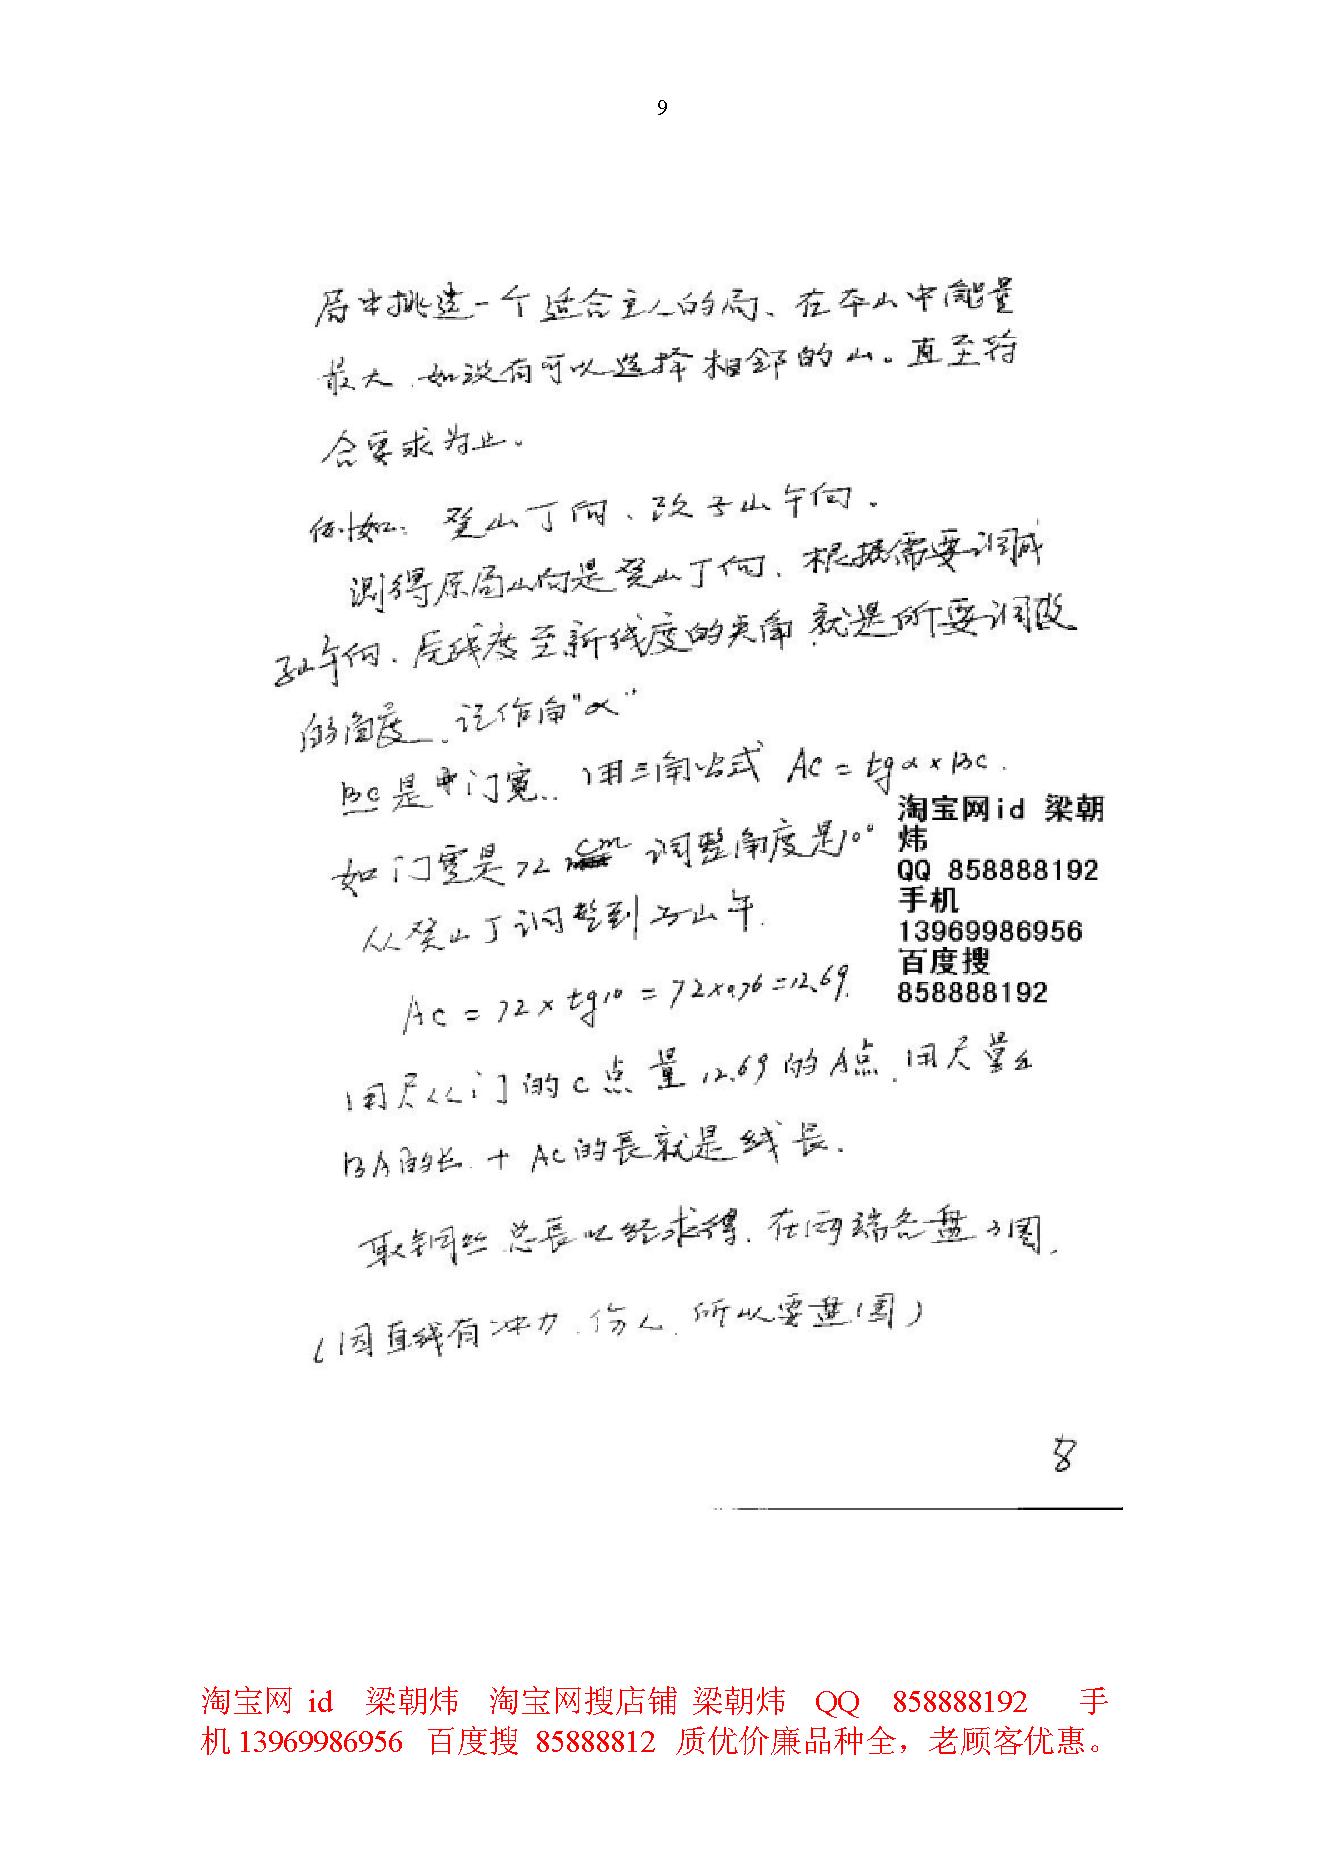 9
局中挑选一个适合主人的局、在本山中能量
最大.如没有可以选择相邻的山。直至符
合要求为止。
例如：癸山丁向、改子山午向.
测得原局山向是癸山丁向、根据需要调成
子山午向、原线度至新线度的夹角就是所要调改
的角度.记作角"α"
BC是中门宽..用三角公式 AC = tgα × BC.
如门宽是72 cm 调整角度是10°
从癸山丁调整到子山午.
AC = 72 × tg10 = 72×0.76 =12.69.
用尺从门的C点量12.69的A点.用尺量出
BA的长 + AC的長就是线長.
取铜丝总長以经求得.在两端各盘3圈.
(因直线有冲力.伤人.所以要盘圈)
淘宝网id 梁朝
炜
QQ 858888192
手机
13969986956
百度搜
858888192
8
淘宝网 id 梁朝炜 淘宝网搜店铺 梁朝炜 QQ 858888192 手
机 13969986956 百度搜 85888812 质优价廉品种全，老顾客优惠。